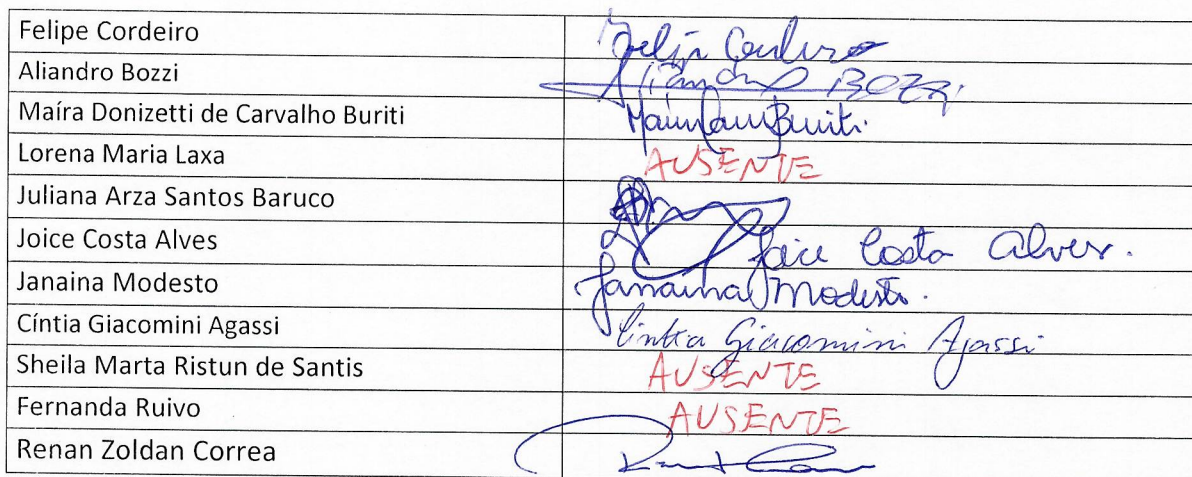 Felipe Cordeiro Felip Cordeiro
Aliandro Bozzi Aliandro BOZZI
Maíra Donizetti de Carvalho Buriti Buriti
Lorena Maria Laxa AUSENTE
Juliana Arza Santos Baruco
Joice Costa Alves Joice Costa Alves.
Janaina Modesto Janaina Modesto.
Cíntia Giacomini Agassi Cintia Giacomini Agassi
Sheila Marta Ristun de Santis AUSENTE
Fernanda Ruivo AUSENTE
Renan Zoldan Correa